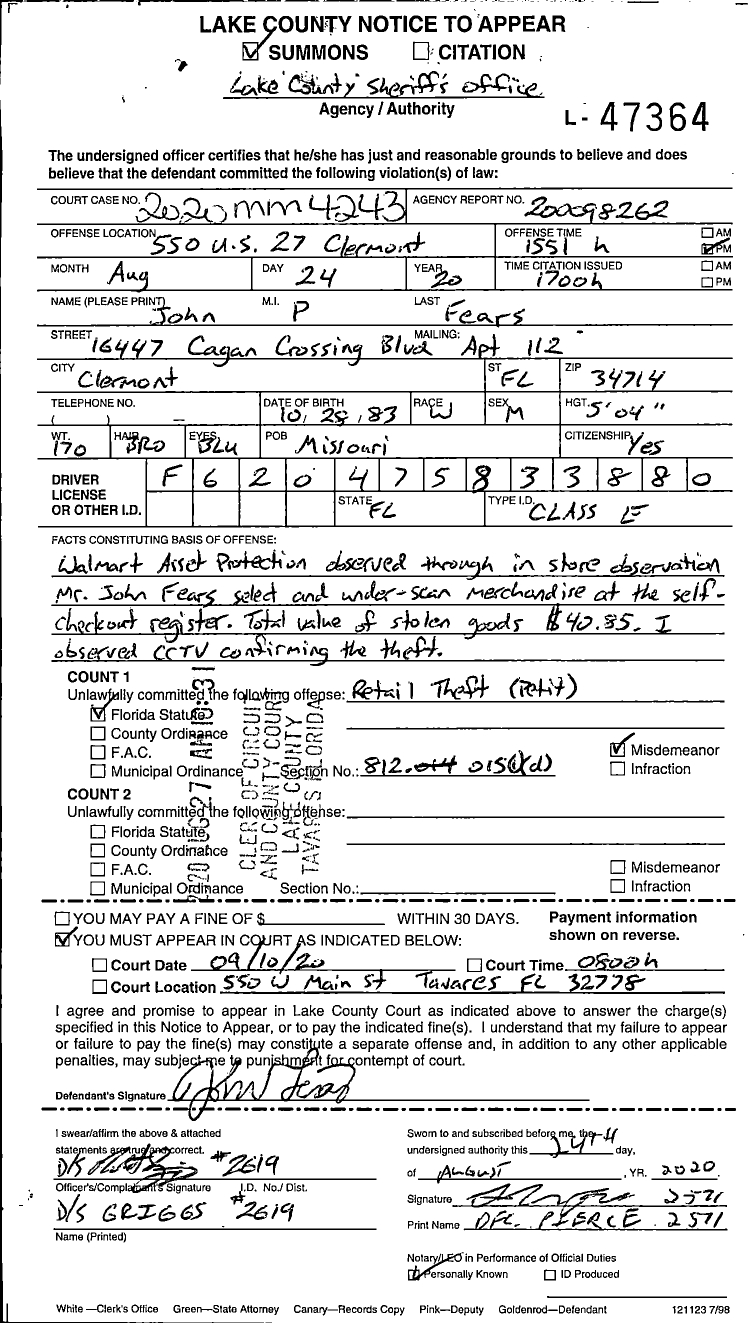 LAKE COUNTY NOTICE TO APPEAR
SUMMONS CITATION
Lake County Sheriff's Office
Agency / Authority
L- 47364
The undersigned officer certifies that he/she has just and reasonable grounds to believe and does
believe that the defendant committed the following violation(s) of law:
COURT CASE NO. 2020MM4243 AGENCY REPORT NO. 200098262
OFFENSE LOCATION 550 U.S. 27 Clermont OFFENSE TIME 1551 h AM PM
MONTH Aug DAY 24 YEAR 20 TIME CITATION ISSUED 1700h AM PM
NAME (PLEASE PRINT) John M.I. P LAST Fears
STREET 16447 Cagan Crossing Blvd MAILING: Apt 112
CITY Clermont ST FL ZIP 34714
TELEPHONE NO. ( ) – DATE OF BIRTH 10, 28, 83 RACE W SEX M HGT. 5'04"
WT. 170 HAIR BRO EYES BLU POB Missouri CITIZENSHIP Yes
DRIVER LICENSE OR OTHER I.D. F 6 2 0 4 7 5 8 3 3 8 8 0
STATE FL TYPE I.D. CLASS E
FACTS CONSTITUTING BASIS OF OFFENSE:
Walmart Asset Protection observed through in store observation
Mr. John Fears select and under-scan merchandise at the self-
checkout register. Total value of stolen goods $40.85. I
observed CCTV confirming the theft.
COUNT 1
Unlawfully committed the following offense: Retail Theft (Petit)
Florida Statute
County Ordinance
F.A.C. Misdemeanor
Municipal Ordinance Section No.: 812.014 015(1)(d) Infraction
COUNT 2
Unlawfully committed the following offense:
Florida Statute
County Ordinance
F.A.C. Misdemeanor
Municipal Ordinance Section No.: Infraction
CLERK OF CIRCUIT
AND COUNTY COURT
LAKE COUNTY
TAVARES FLORIDA
YOU MAY PAY A FINE OF $ WITHIN 30 DAYS. Payment information
shown on reverse.
YOU MUST APPEAR IN COURT AS INDICATED BELOW:
Court Date 09/10/20 Court Time 0800h
Court Location 550 W Main St Tavares FL 32778
I agree and promise to appear in Lake County Court as indicated above to answer the charge(s)
specified in this Notice to Appear, or to pay the indicated fine(s). I understand that my failure to appear
or failure to pay the fine(s) may constitute a separate offense and, in addition to any other applicable
penalties, may subject me to punishment for contempt of court.
Defendant's Signature John Fears
I swear/affirm the above & attached
statements are true and correct.
D/S #2619
Officer's/Complainant's Signature I.D. No./ Dist.
D/S GRIGGS #2619
Name (Printed)
Sworn to and subscribed before me, the
undersigned authority this 24th day,
of AUGUST, YR. 2020
Signature 2571
Print Name DFC. PIERCE 2571
Notary/LEO in Performance of Official Duties
Personally Known ID Produced
White —Clerk's Office Green—State Attorney Canary—Records Copy Pink—Deputy Goldenrod—Defendant 121123 7/98